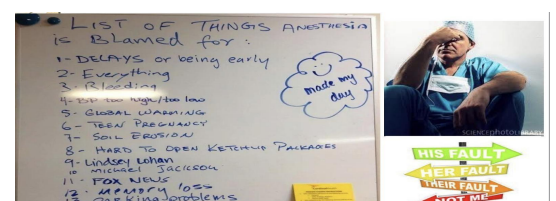 LIST OF THINGS ANESTHESIA
is Blamed for:
1- DELAYS or being early
2- Everything
3- Bleeding
4- BP too high/too low
5- GLOBAL WARMING
6- TEEN PREGNANCY
7- SOIL EROSION
8- HARD TO OPEN KETCHUP PACKAGES
9- Lindsey Lohan
10 MICHAEL JACKSON
11- FOX NEWS
12- MEMORY loss
13 Parking problems
made my
day
SCIENCEPHOTOLIBRARY
HIS FAULT
HER FAULT
THEIR FAULT
NOT ME